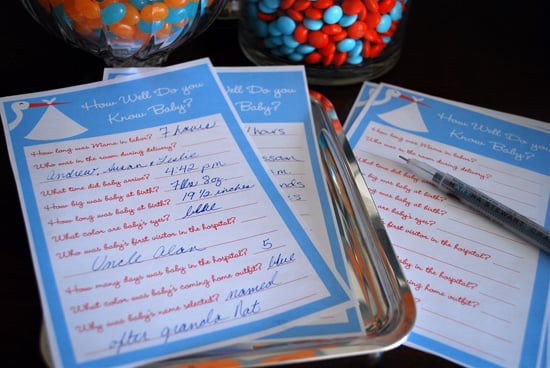 How Well Do you
Know Baby?
How long was Mama in labor? 7 hours
Who was in the room during delivery?
Andrew, Susan & Leslie
What time did baby arrive? 4:42 pm
How big was baby at birth? 7lbs 3oz
How long was baby at birth? 19 1/2 inches
What color are baby's eyes? blue
Who was baby's first visitor in the hospital?
Uncle Alan
How many days was baby in the hospital? 5
What color was baby's coming home outfit? blue
Why was baby's name selected? named
after granola Nat
How Well Do you
Know Baby?
hours
How Well Do you
Know Baby?
How long was Mama in labor?
Who was in the room during delivery?
What time did baby arrive?
big was baby at birth?
baby at birth?
baby's eyes?
visitor in the hospital?
baby in the hospital?
coming home outfit?
selected?